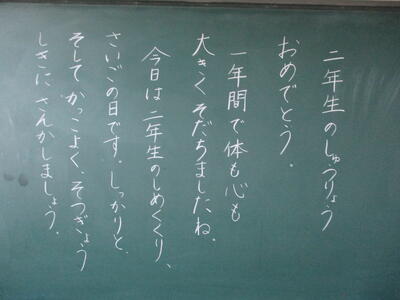 二年生のしゅうりょう
おめでとう。
一年間で体も心も
大きくそだちましたね。
今日は二年生のしめくくり、
さいごの日です。しっかりと、
そしてかっこよく、そつぎょう
しきにさんかしましょう。